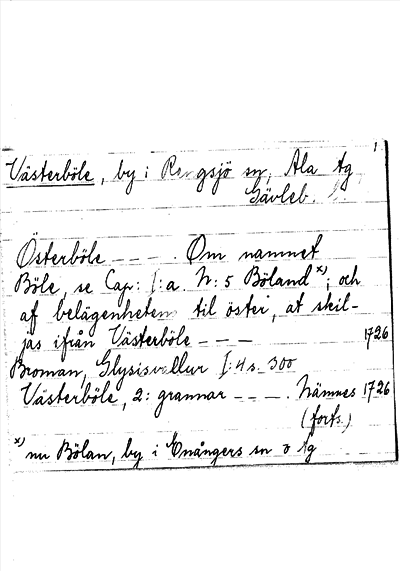 1
Västerböle, by i Rengsjö sn, Ala tg
Gävleb. l.
Österböle – – – . Om namnet
Böle, se Cap: I:a. N: 5 Böland x); och
af belägenheten til öster, at skil-
jas ifrån Västerböle – – – 1726
Broman, Glysisvallur I:4 s. 300
Västerböle, 2: grannar – – – . Nämnes 1726
(forts.)
x) nu Bölan, by i Enångers sn o tg